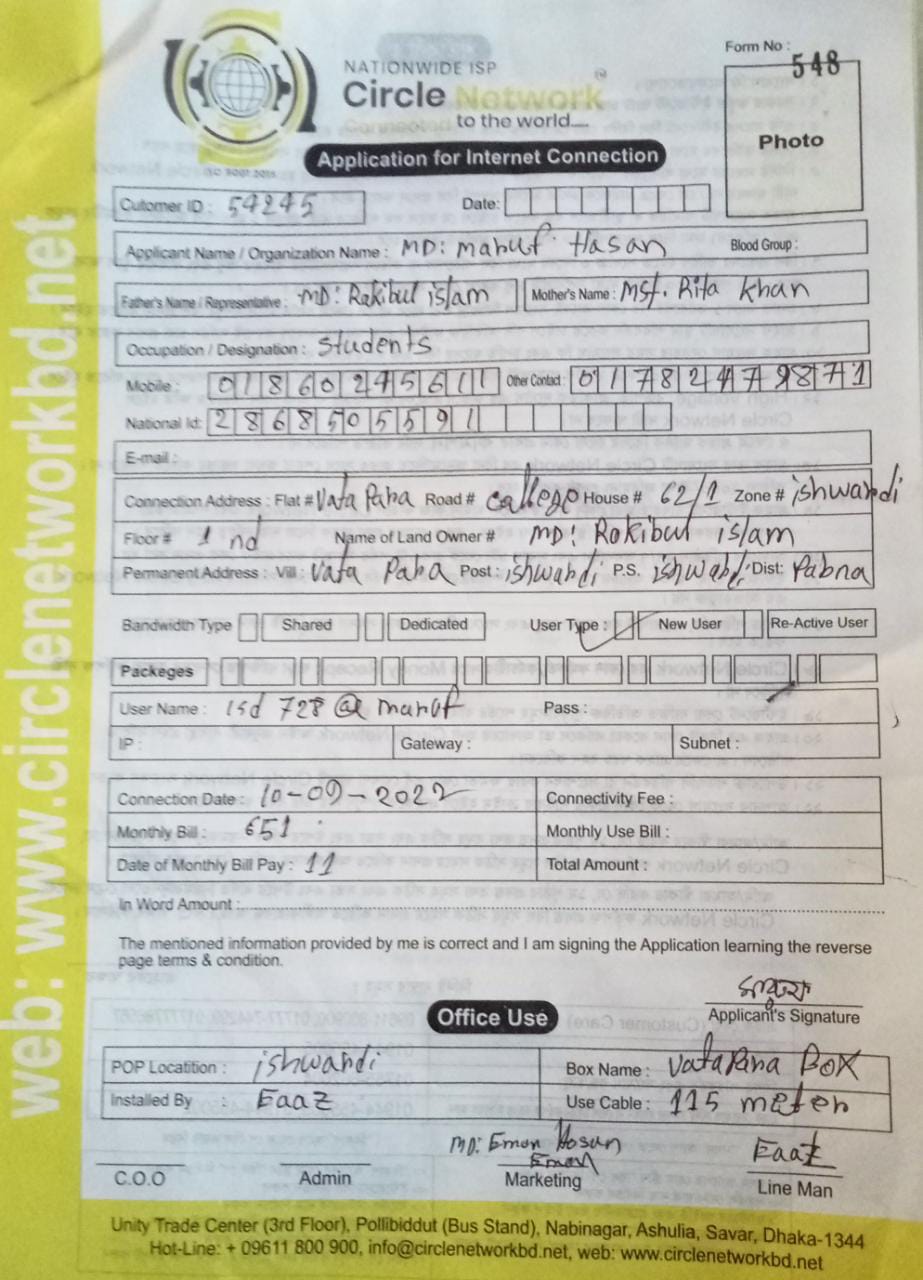 Form No :
548
NATIONWIDE ISP
Circle Network
to the world....
ISO 9001:2015
Photo
Application for Internet Connection
Cutomer ID : 54245 Date:
Applicant Name / Organization Name : MD: maruf Hasan Blood Group :
Father's Name / Representative : MD: Rakibul islam Mother's Name : Mst. Rita khan
Occupation / Designation : students
Mobile : 01860245611 Other Contact : 01782479871
National Id: 2868505591
E-mail :
Connection Address : Flat # Vata Para Road # college House # 62/1 Zone # ishwardi
Floor # 1 nd Name of Land Owner # MD: Rokibul islam
Permanent Address : Vill : Vata Para Post : ishwardi P.S. Dist: Pabna
Bandwidth Type Shared Dedicated User Type : New User Re-Active User
Packeges
User Name : isd 728 @ maruf Pass :
IP : Gateway : Subnet :
Connection Date : 10-09-2022 Connectivity Fee :
Monthly Bill : 651 Monthly Use Bill :
Date of Monthly Bill Pay : 11 Total Amount :
In Word Amount :
The mentioned information provided by me is correct and I am signing the Application learning the reverse
page terms & condition.
Applicant's Signature
Office Use
POP Locatition : ishwardi Box Name : Vata Para Box
Installed By : Eaaz Use Cable : 115 meter
MD: Emon Hosan
Emon
Eaaz
C.O.O Admin Marketing Line Man
Unity Trade Center (3rd Floor), Pollibiddut (Bus Stand), Nabinagar, Ashulia, Savar, Dhaka-1344
Hot-Line: + 09611 800 900, info@circlenetworkbd.net, web: www.circlenetworkbd.net
web: www.circlenetworkbd.net